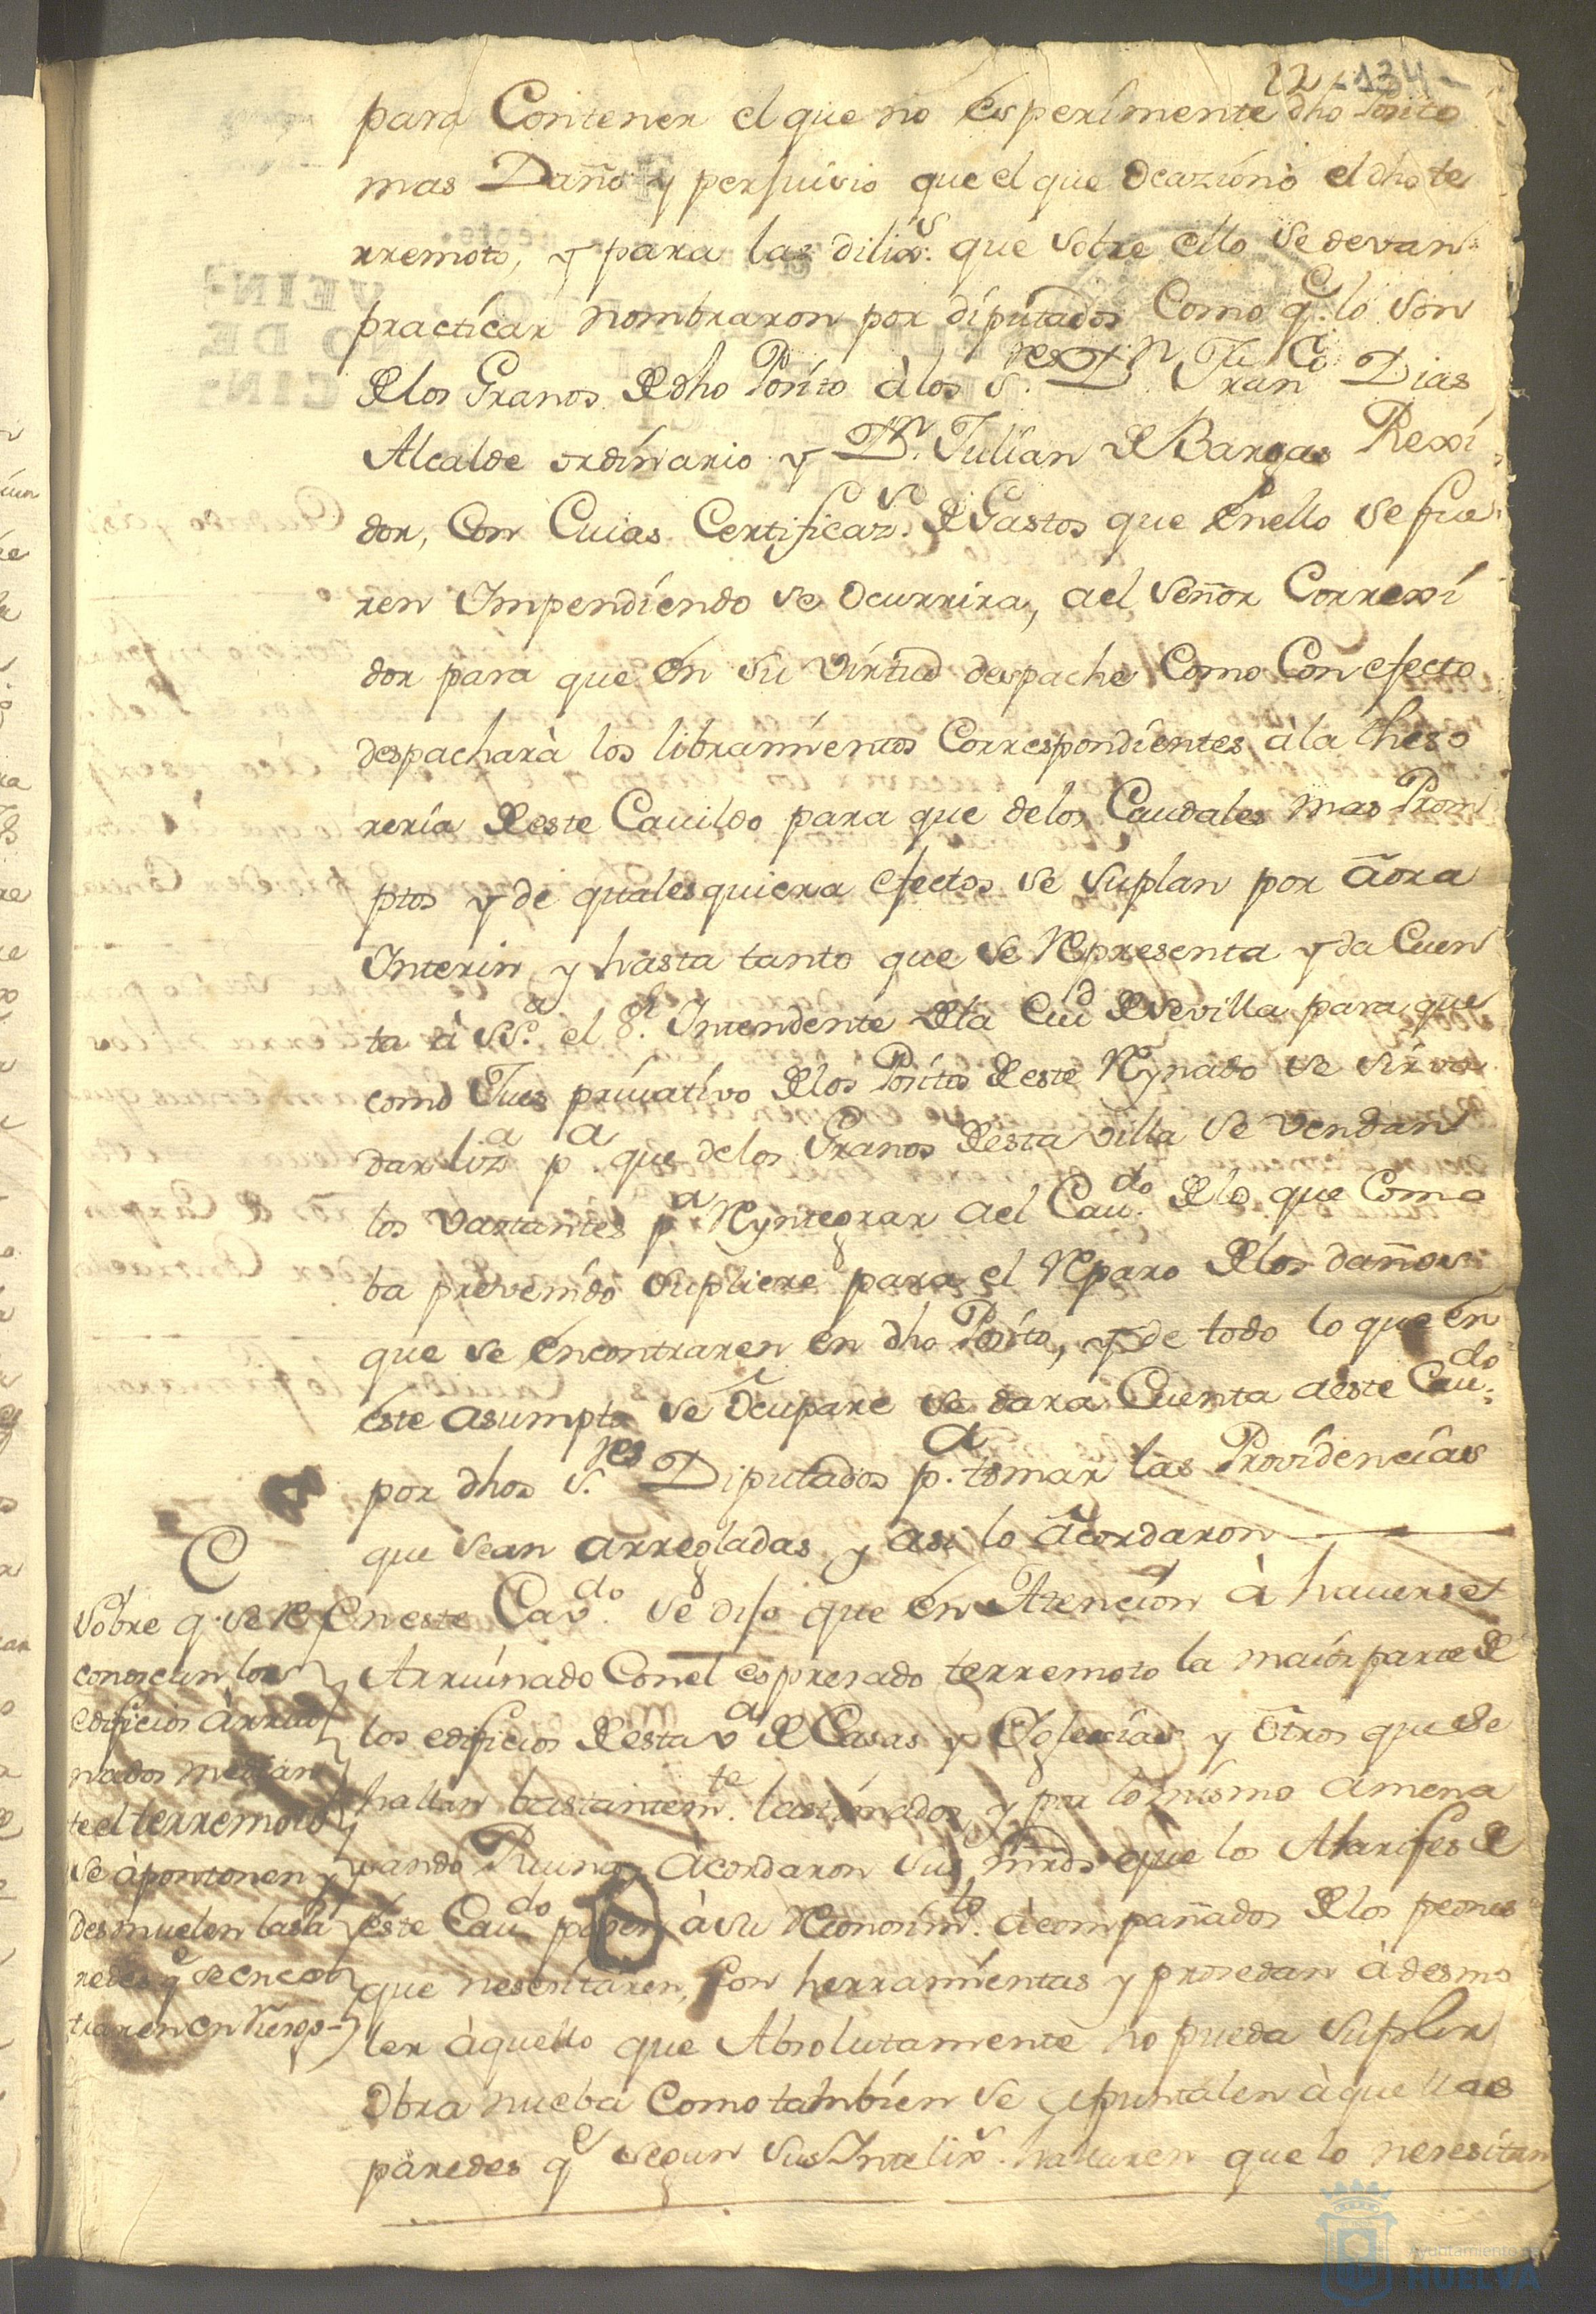 22 -134-
para Contener el que no esperimente dho Posito
mas Daño y perjuisio que el que Ocazionò el dho te
rremoto, y para las dilixs. que sobre ello se devan
practicar nombraron por diputados Como q.e lo son
de los Granos de dho Posito à los S.res D.n Fran.co Dias
Alcalde ordinario y D.n Julian de Bargas Rexi
dor, Con Cuias Certificazs. de Gastos que en ello se fue
ren Impendiendo se Ocurrira, ael Señor Correxi
dor para que en su virtud despache Como Con efecto
despacharà los libramientos Correspondientes, à la theso
reria de este Cauildo para que de los Caudales mas Prom
ptos y de quales quiera efectos se suplan por aora
Interin, y hasta tanto que se Representa y da Cuen
ta à SS.a el S.r Intendente de la Ciu.d de Sevilla para que
como Jues priuativo de los Positos de este Reynado se sirva
dar liz.a p.a que de los Granos de esta villa se vendan
los vastantes p.a Reyntegrar ael Cau.do de lo que Como
ba prevenido supliere para el Reparo de los daños
que se encontraren en dho Posito, y de todo lo que en
este asumpto se Ocupare se dara Cuenta a este Cau.do
por dhos S.res Diputados p.a tomar las Providencias
que sean arregladas y asi lo acordaron
Sobre q. se re
conoscan los
edificios àrrui
nados median
te el terremoto
se àpontonen y
desmuelen las pa
redes q.e se encon
traren en riesgo
En este Cav.do se dijo que en Atencion à hauerse
Arruinado Con el espresado terremoto la maior parte de
los edificios de esta v.a de Casas y Yglecias y Otros que se
hallan bastantem.te lastimados, y por lo mismo amena
sando Ruina, acordaron sus mrds que los Alarifes de
este Cau.do pasen à su Reconosim.to àcompañados de los peones
que nesesitaren, Con herramientas y prosedan à desmo
ler àquello que Absolutamente no pueda suplir
Obra nueba Como tambien se apuntalen àquellas
paredes q.e segun sus Intelixs. hallaren que lo nesesitan
Ayuntamiento de
HUELVA